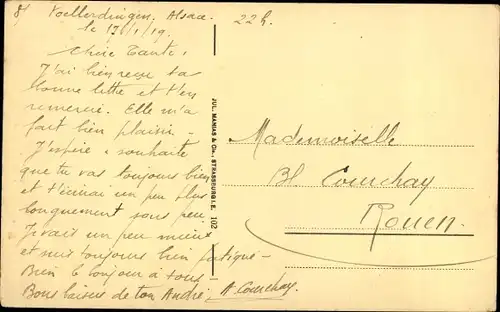 8/ Voellerdingen, Alsace.
le 17/1/19.
22h.
Chère Tante,
J'ai bien reçu ta
bonne lettre et t'en
remercie. Elle m'a
fait bien plaisir -
J'espère & souhaite
que tu vas toujours bien
et t'écrirai un peu plus
longuement sous peu.
Je vais un peu mieux
et suis toujours bien fatigué -
Bien le bonjour à tous -
Bons baisers de ton André. A. Courchay.
JUL. MANIAS & Cie., STRASSBURG I. E. 102
Mademoiselle
Bl. Courchay
Rouen.